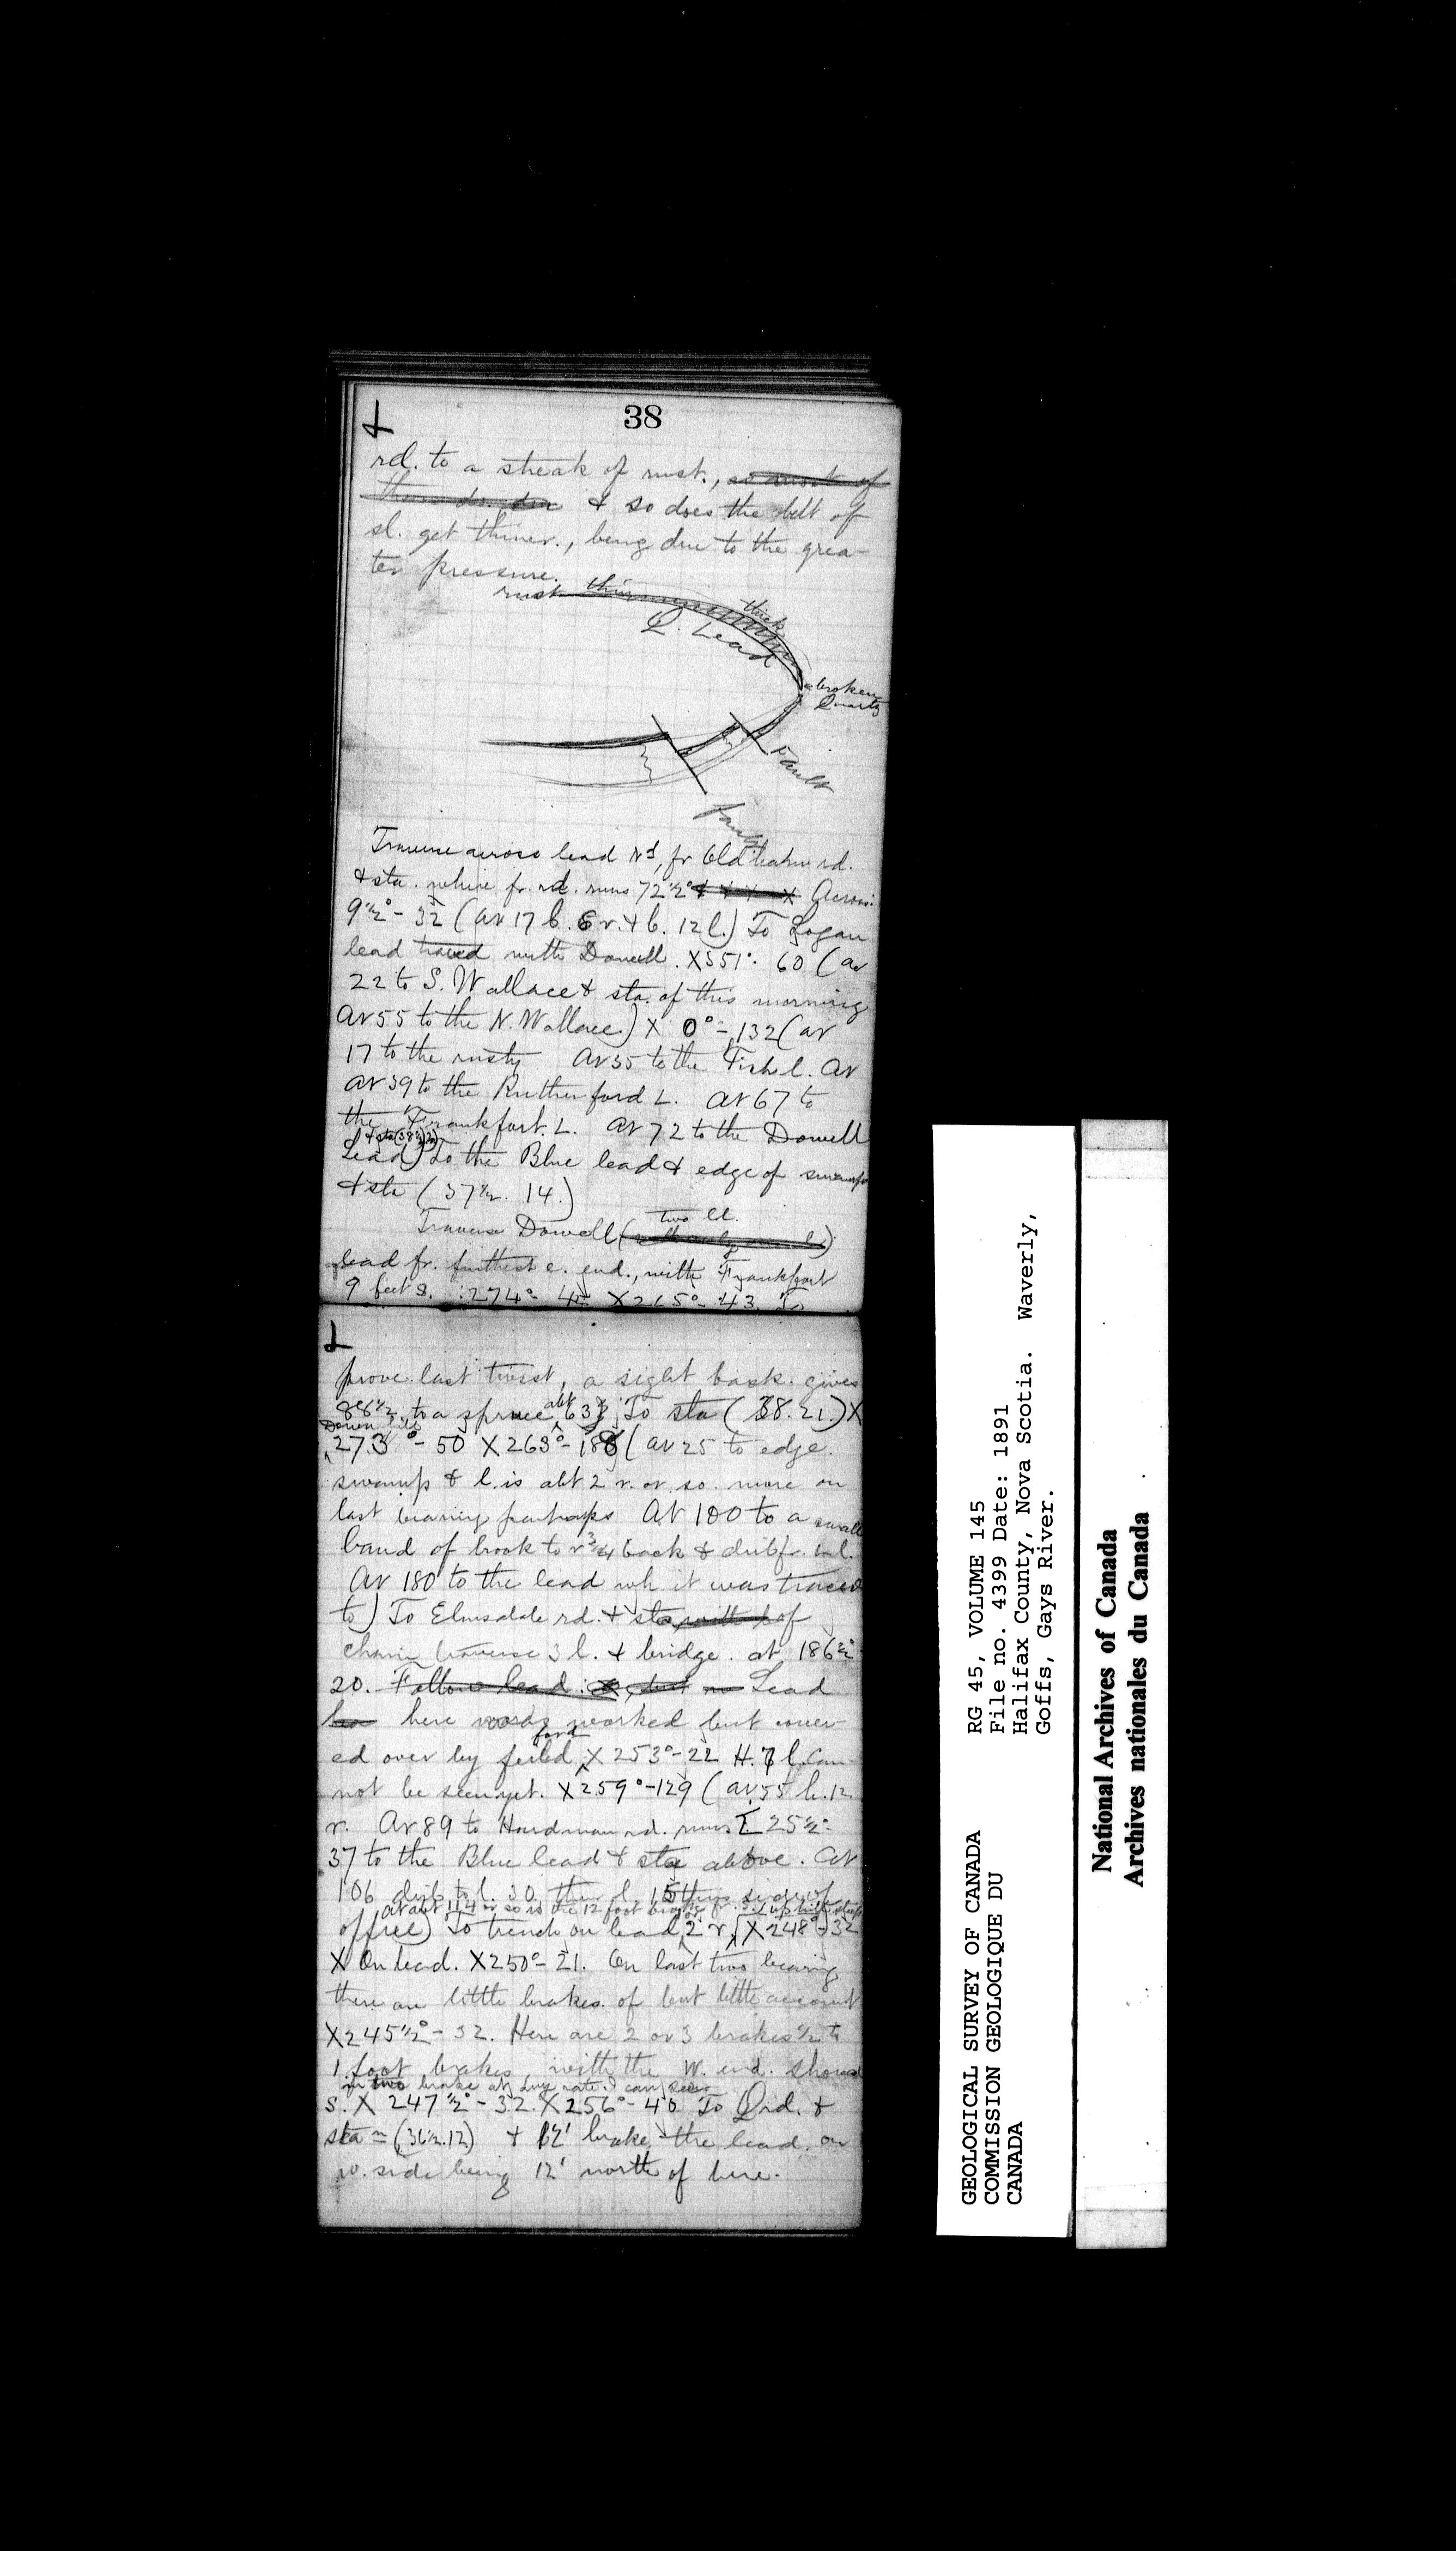 38
rd. to a streak of rust.,
& so does the belt of
sl. get thiner., being due to the grea-
ter pressure.
rust thin
thick
Q. Lead
broken
Quartz
Fault
fault
Traverse across lead Nd, fr Old rd.
& sta. where fr. rd. runs 72½° Across:
9½° - 32 (at 17 b. 6 r. & b. 12 l.) To Logan
lead traced with Dowell. X 351°. 60 (at
22 to S. Wallace & sta. of this morning
at 55 to the N. Wallace) X 0° - 132 (at
17 to the rusty At 35 to the Fish l. At
at 39 to the Rutherford L. at 67 to
the Frankfort. L. at 72 to the Dowell
& sta (38½.2)
Lead) To the Blue lead & edge of swamp
& sta (37½. 14.)
two ll.
Traverse Dowell
lead fr. furthest e. end., with Frankfort
9 feet s. : 274° - 45 X 265° - 43 To
prove last twist, a sight back gives
88½ to a spruce abt 63 To sta (38.21.) X
Down hill
273° - 50 X 263° - 188 (at 25 to edge
swamp & l. is abt 2 r. or so. more on
last bearing perhaps At 100 to a small
band of brook to r ¾ back &
At 180 to the lead wh it was traced
to) To Elmsdale rd. & sta of
chain traverse 3 l. & bridge. at 186½°
20. Follow lead. Lead
here was worked but cover-
ed over by feild X 253° - 22 H. 7 l. Can-
not be seen yet. X 259° - 129 (at 55 h. 12
r. At 89 to Hardman rd. runs 25½° -
37 to the Blue lead & sta above. At
106 to l. 30 15 this side of
at abt 114 or so is the 12 foot
office) To trench on lead 2 r. X 248° - 32
X On lead. X 250° - 21. On last two bearing
there are little brakes of but little account
X 245½° - 32. Here are 2 or 3 brakes ½ to
1 foot brakes with the W. end. shoved
in two brake at any rate I can see
S. X 247½° - 32. X 256° - 40 To Q rd. &
sta = (36½.12) & 12' brake the lead. on
w. side being 12' north of here.
GEOLOGICAL SURVEY OF CANADA
COMMISSION GEOLOGIQUE DU
CANADA
RG 45, VOLUME 145
File no. 4399 Date: 1891
Halifax County, Nova Scotia. Waverly,
Goffs, Gays River.
National Archives of Canada
Archives nationales du Canada